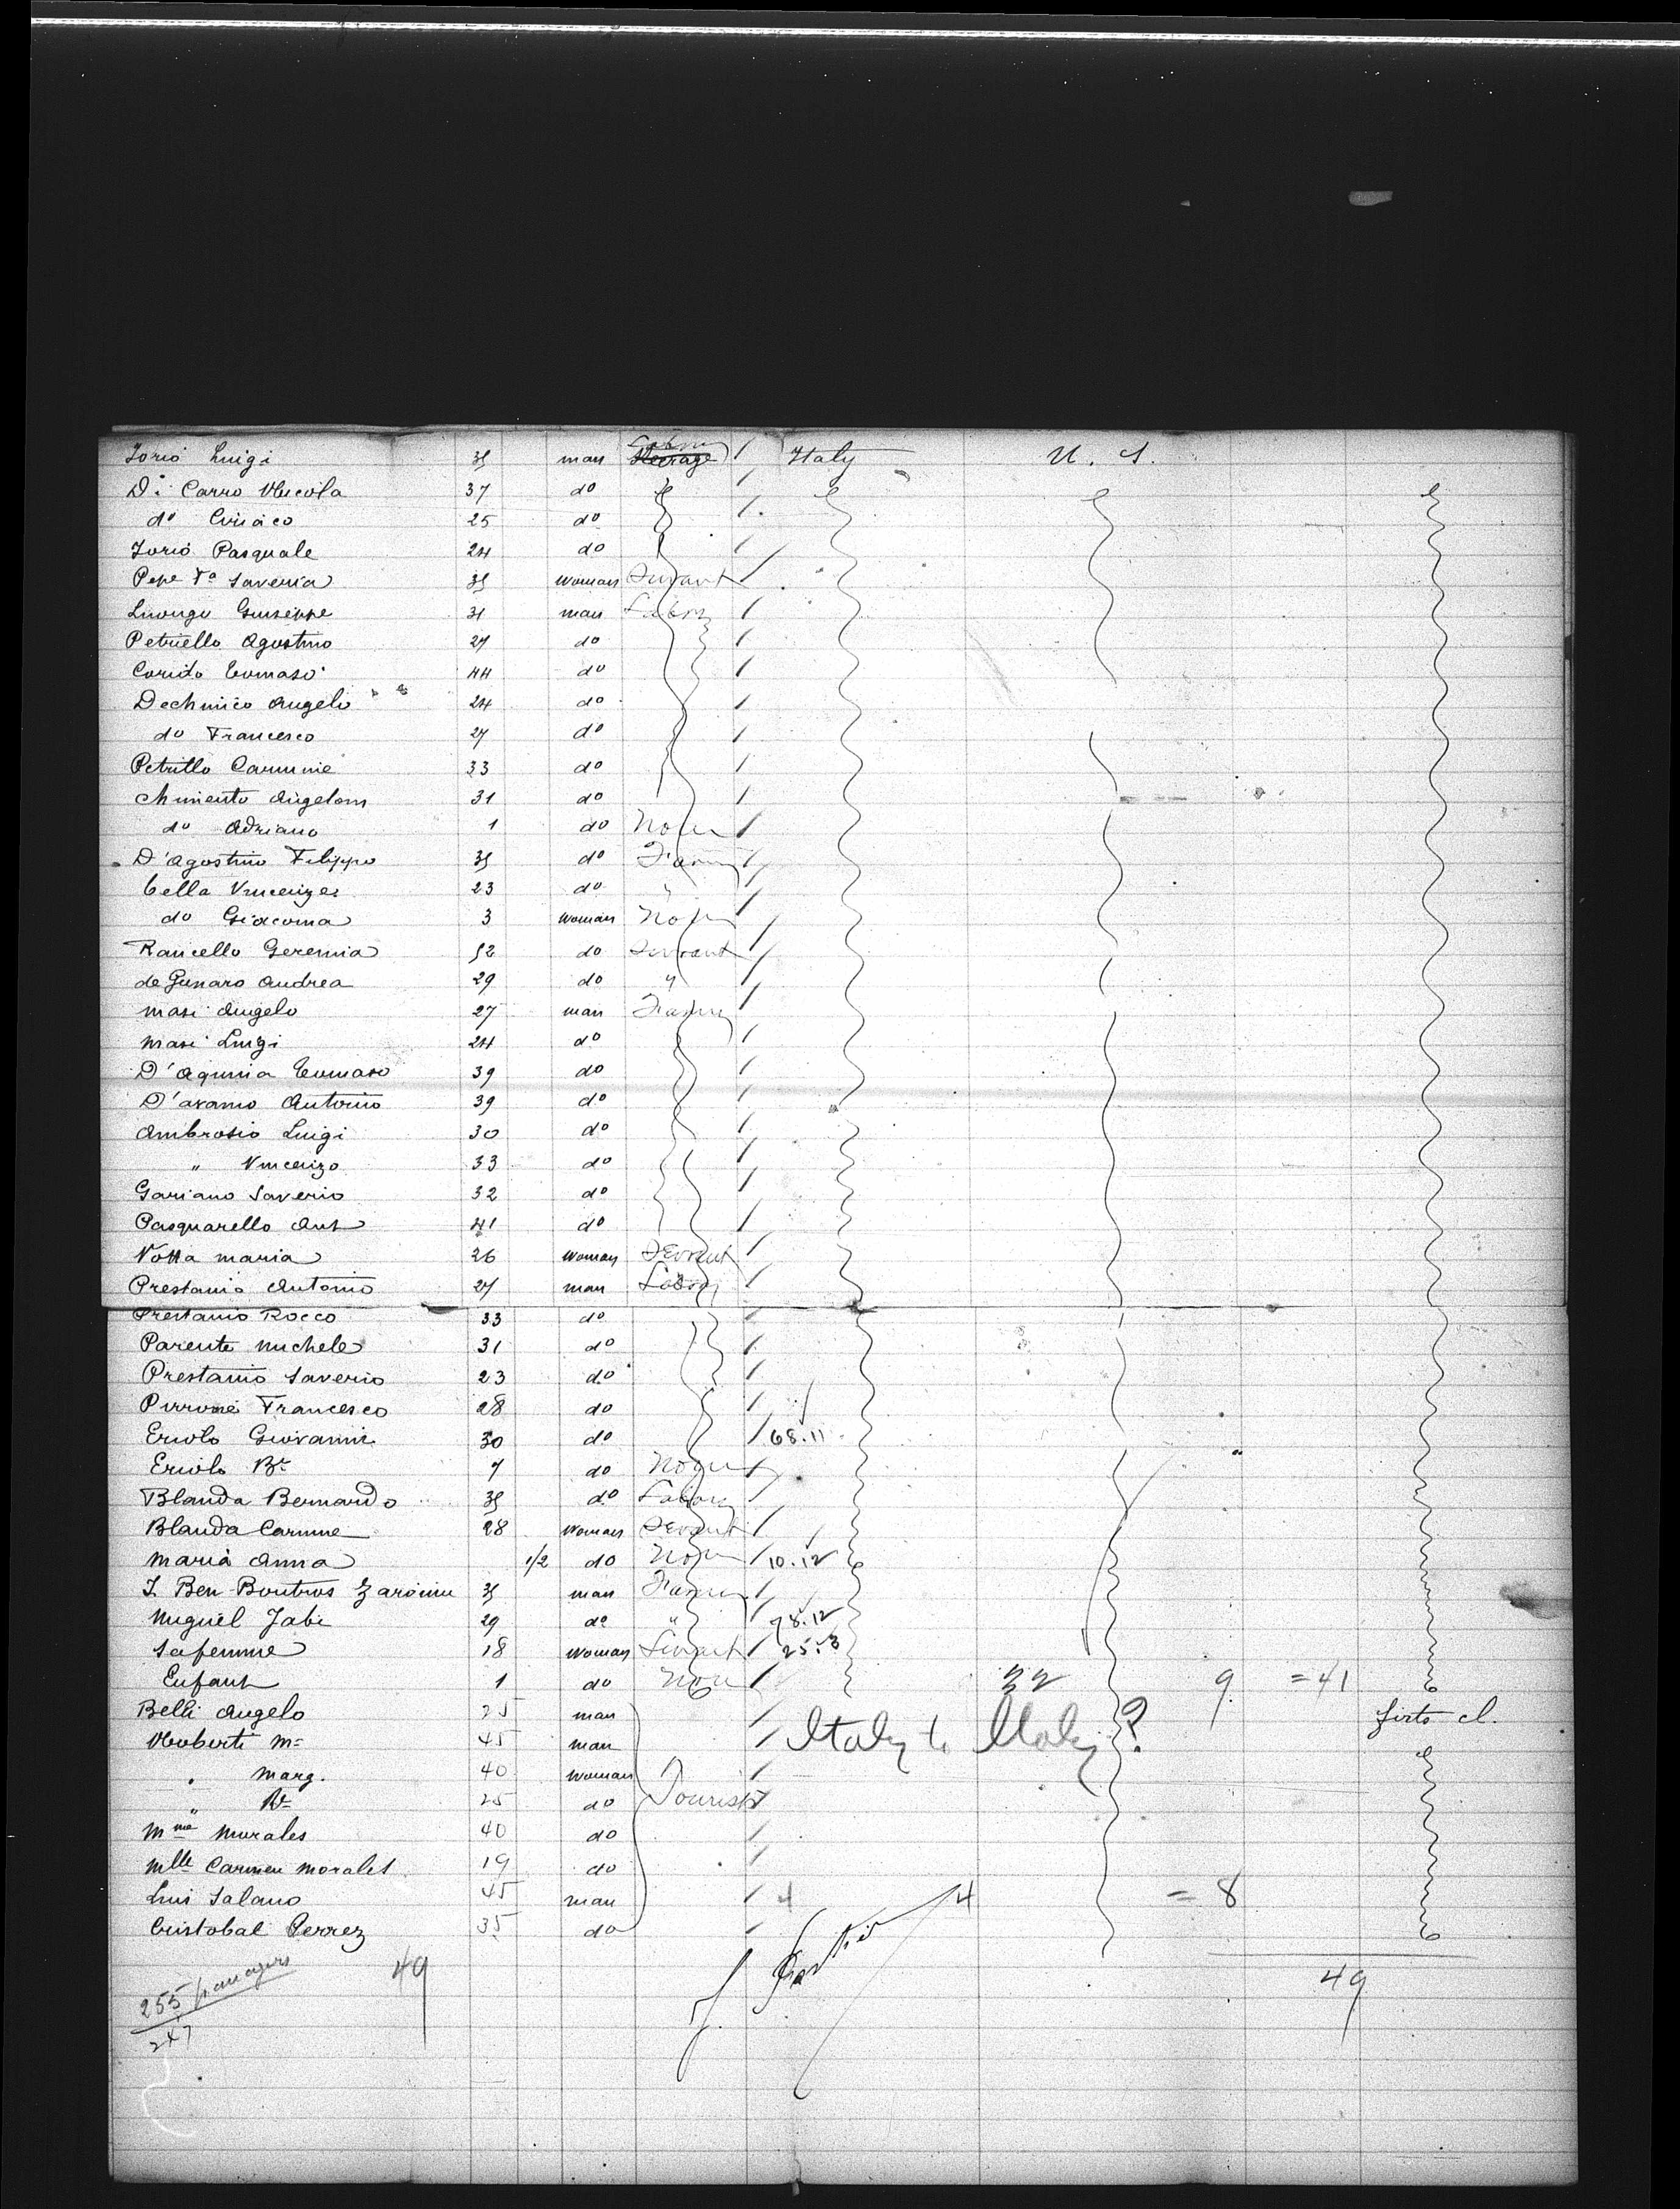 Iorio Luigi 35 man Labor Steerage Italy U. S.
Di Carro Nucola 37 do
do Ciriaco 25 do
Iorio Pasquale 24 do
Pepe Fa Saveria 35 woman Servant
Luongo Giuseppe 31 man Labor
Petriello Agostino 27 do
Corido Tomaso 44 do
Dechmico Angelo 24 do
do Francesco 27 do
Petrillo Carmine 33 do
Chimento Angelom 31 do
do Adriano 1 do None
D'Agostino Filippo 35 do Farmer
Cella Vincenzo 23 do "
do Giacoma 3 woman None
Rancello Geremia 52 do Servant
de Genaro Andrea 29 do "
Masi Angelo 27 man Farmer
Masi Luigi 24 do
D'Aquina Tomaso 39 do
D'aramo Antonio 39 do
Ambrosio Luigi 30 do
" Vincenzo 33 do
Gariano Saverio 32 do
Pasquarello Ant 41 do
Votta Maria 26 woman Servant
Prestanio Antonio 27 man Labor
Prestanio Rocco 33 do
Parente Michele 31 do
Prestanio Saverio 23 do
Pirrone Francesco 28 do
Eriolo Giovanni 30 do 68.11
Eriolo Bt 7 do None
Blanda Bernardo 35 do Labor
Blanda Carmine 28 woman Servant
Maria Anna 1/2 do None 10.12
I. Ben Boutros Zaroine 35 man Farmer
Miguel Jabe 29 do " 78.12
Sa femme 18 woman Servant 25.3
Enfant 1 do None 32 9 = 41
Belli Angelo 25 man firts cl.
Noberti M= 45 man Italy to Italy?
" Marg. 40 woman
" 25 do Tourist
Mme Morales 40 do
Mlle Carmen Morales 19 do
Luis Salano 45 man 4 4 = 8
Cristobal Perrez 35 do
49 49
255 passagers
247